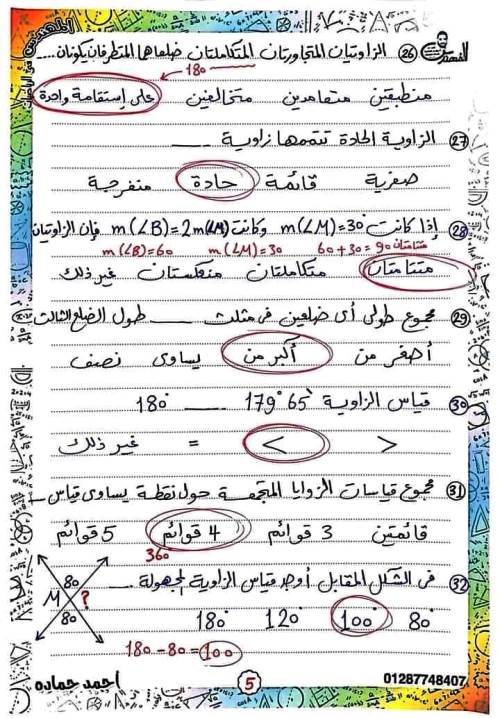 المهندس في الرياضيات
المهندس
26 الزاويتان المتجاورتان المتكاملتان ضلعاها المتطرفان يكونان ....
180
منطبقين متعامدين متخالفين على إستقامة واحدة
27 الزاوية الحادة تتممها زاوية ____
صفرية قائمة حادة منفرجة
28 إذا كانت m(∠M)=30° وكانت m(∠B)=2m(∠M) فإن الزاويتان
m(∠B)=60 m(∠M)=30 60+30=90 متتامتان
متتامتان متكاملتان منعكستان غير ذلك
29 مجموع طولى أى ضلعين فى مثلث ____ طول الضلع الثالث
أصغر من أكبر من يساوى نصف
30 قياس الزاوية 179° 65` ____ 180°
> < = غير ذلك
31 مجموع قياسات الزوايا المتجمعة حول نقطة يساوى قياس __
قائمتين 3 قوائم 4 قوائم 5 قوائم
360
32 فى الشكل المقابل أوجد قياس الزاوية المجهولة ____
80
M ?
80
80° 100° 120° 180°
180 - 80 = 100
01287748407
5
احمد حماده